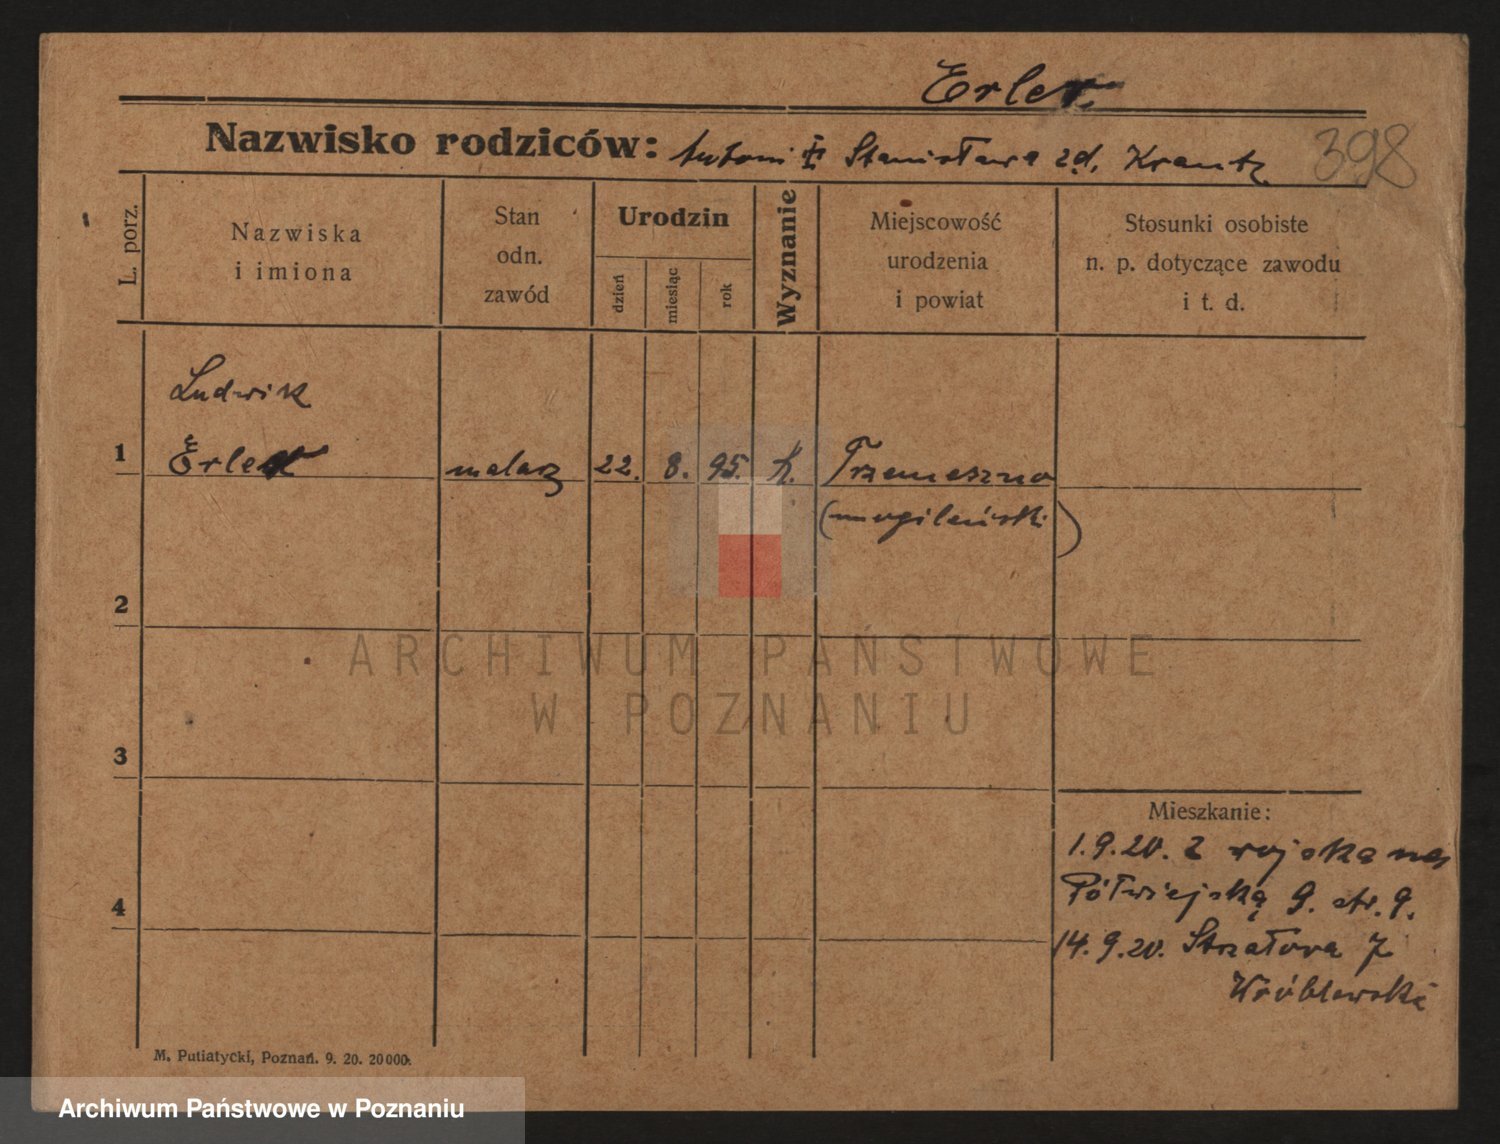 Erlet
Nazwisko rodziców: Antoni i Stanisława zd. Krantz
398
L. porz.
Nazwiska
i imiona
Stan
odn.
zawód
Urodzin
dzień
miesiąc
rok
Wyznanie
Miejscowość
urodzenia
i powiat
Stosunki osobiste
n. p. dotyczące zawodu
i t. d.
Ludwik
1 Erlet malarz 22. 8. 95. k. Trzemeszno
(mogileński)
2
ARCHIWUM PAŃSTWOWE
W POZNANIU
3
Mieszkanie:
1.9.20. z wojska na
Półwiejską 9. str. 9.
4
14.9.20. Strzałowa 7
Wróblewski
M. Putiatycki, Poznań. 9. 20. 20000.
Archiwum Państwowe w Poznaniu